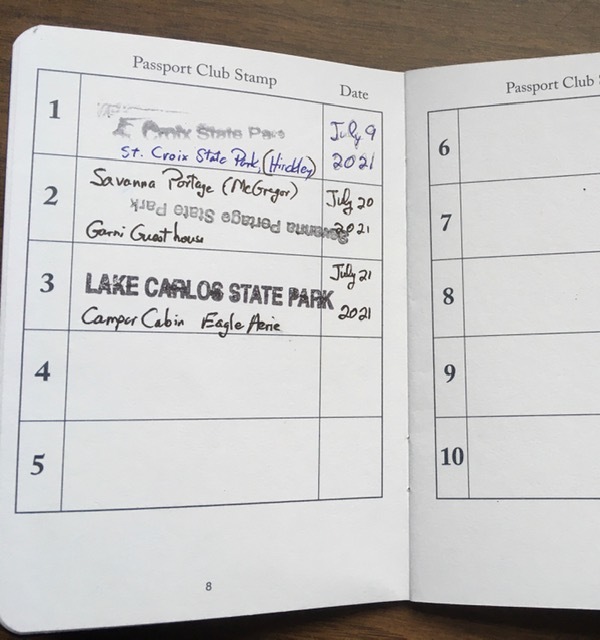 Passport Club Stamp Date
1 Croix State Park July 9
St. Croix State Park, (Hinckley) 2021
2 Savanna Portage (McGregor) July 20
Savanna Portage State Park 2021
Garni Guesthouse
3 LAKE CARLOS STATE PARK July 21
Camper Cabin Eagle Aerie 2021
4
5
8
Passport Club
6
7
8
9
10